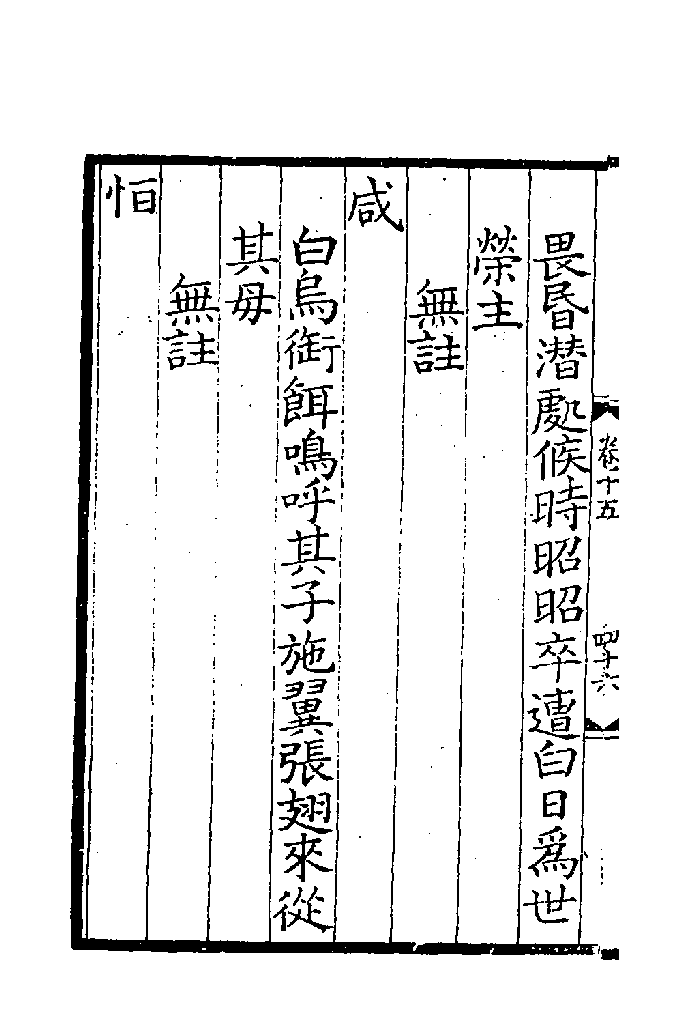 卷十五
四十六
畏昬潜處候時昭昭卒遭白日爲世
榮主
無註
咸
白烏銜餌鳴呼其子施翼張翅來從
其母
無註
恒